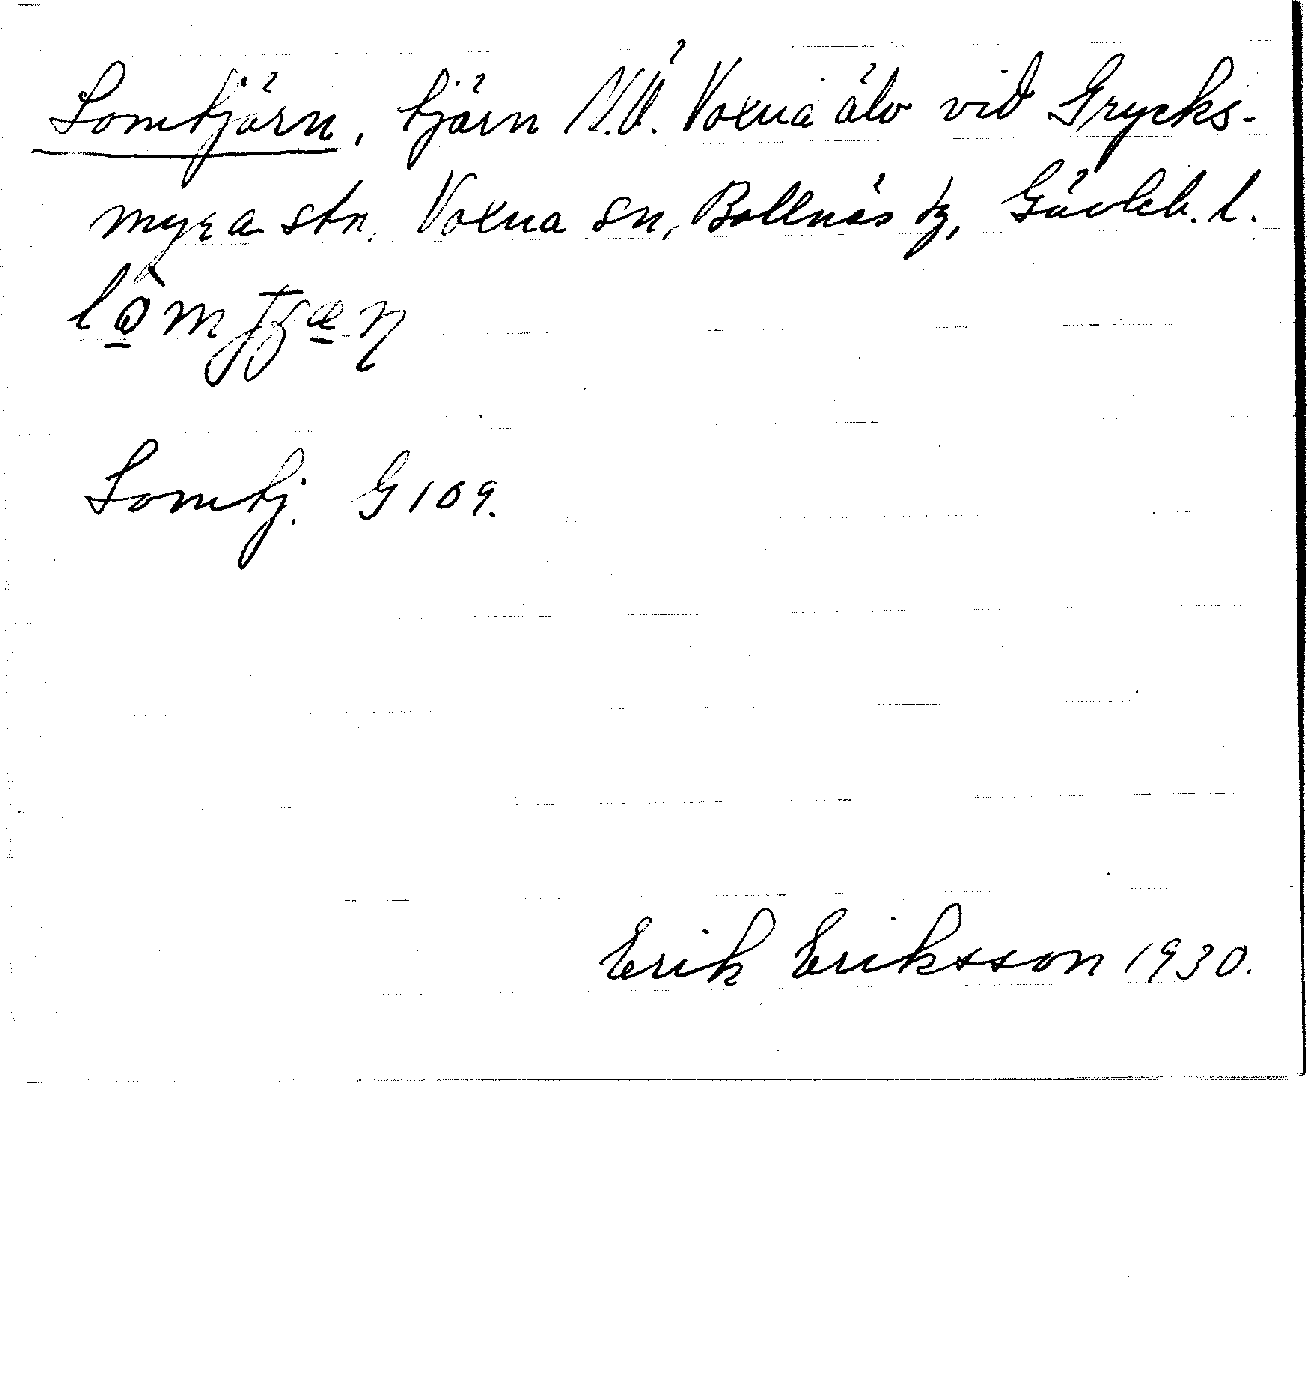 Lomtjärn, tjärn N.Ö. Voxna älv vid Grycks-
myra stn, Voxna sn, Bollnäs tg, Gävleb. l.
Lomtj. G 109.
Erik Eriksson 1930.